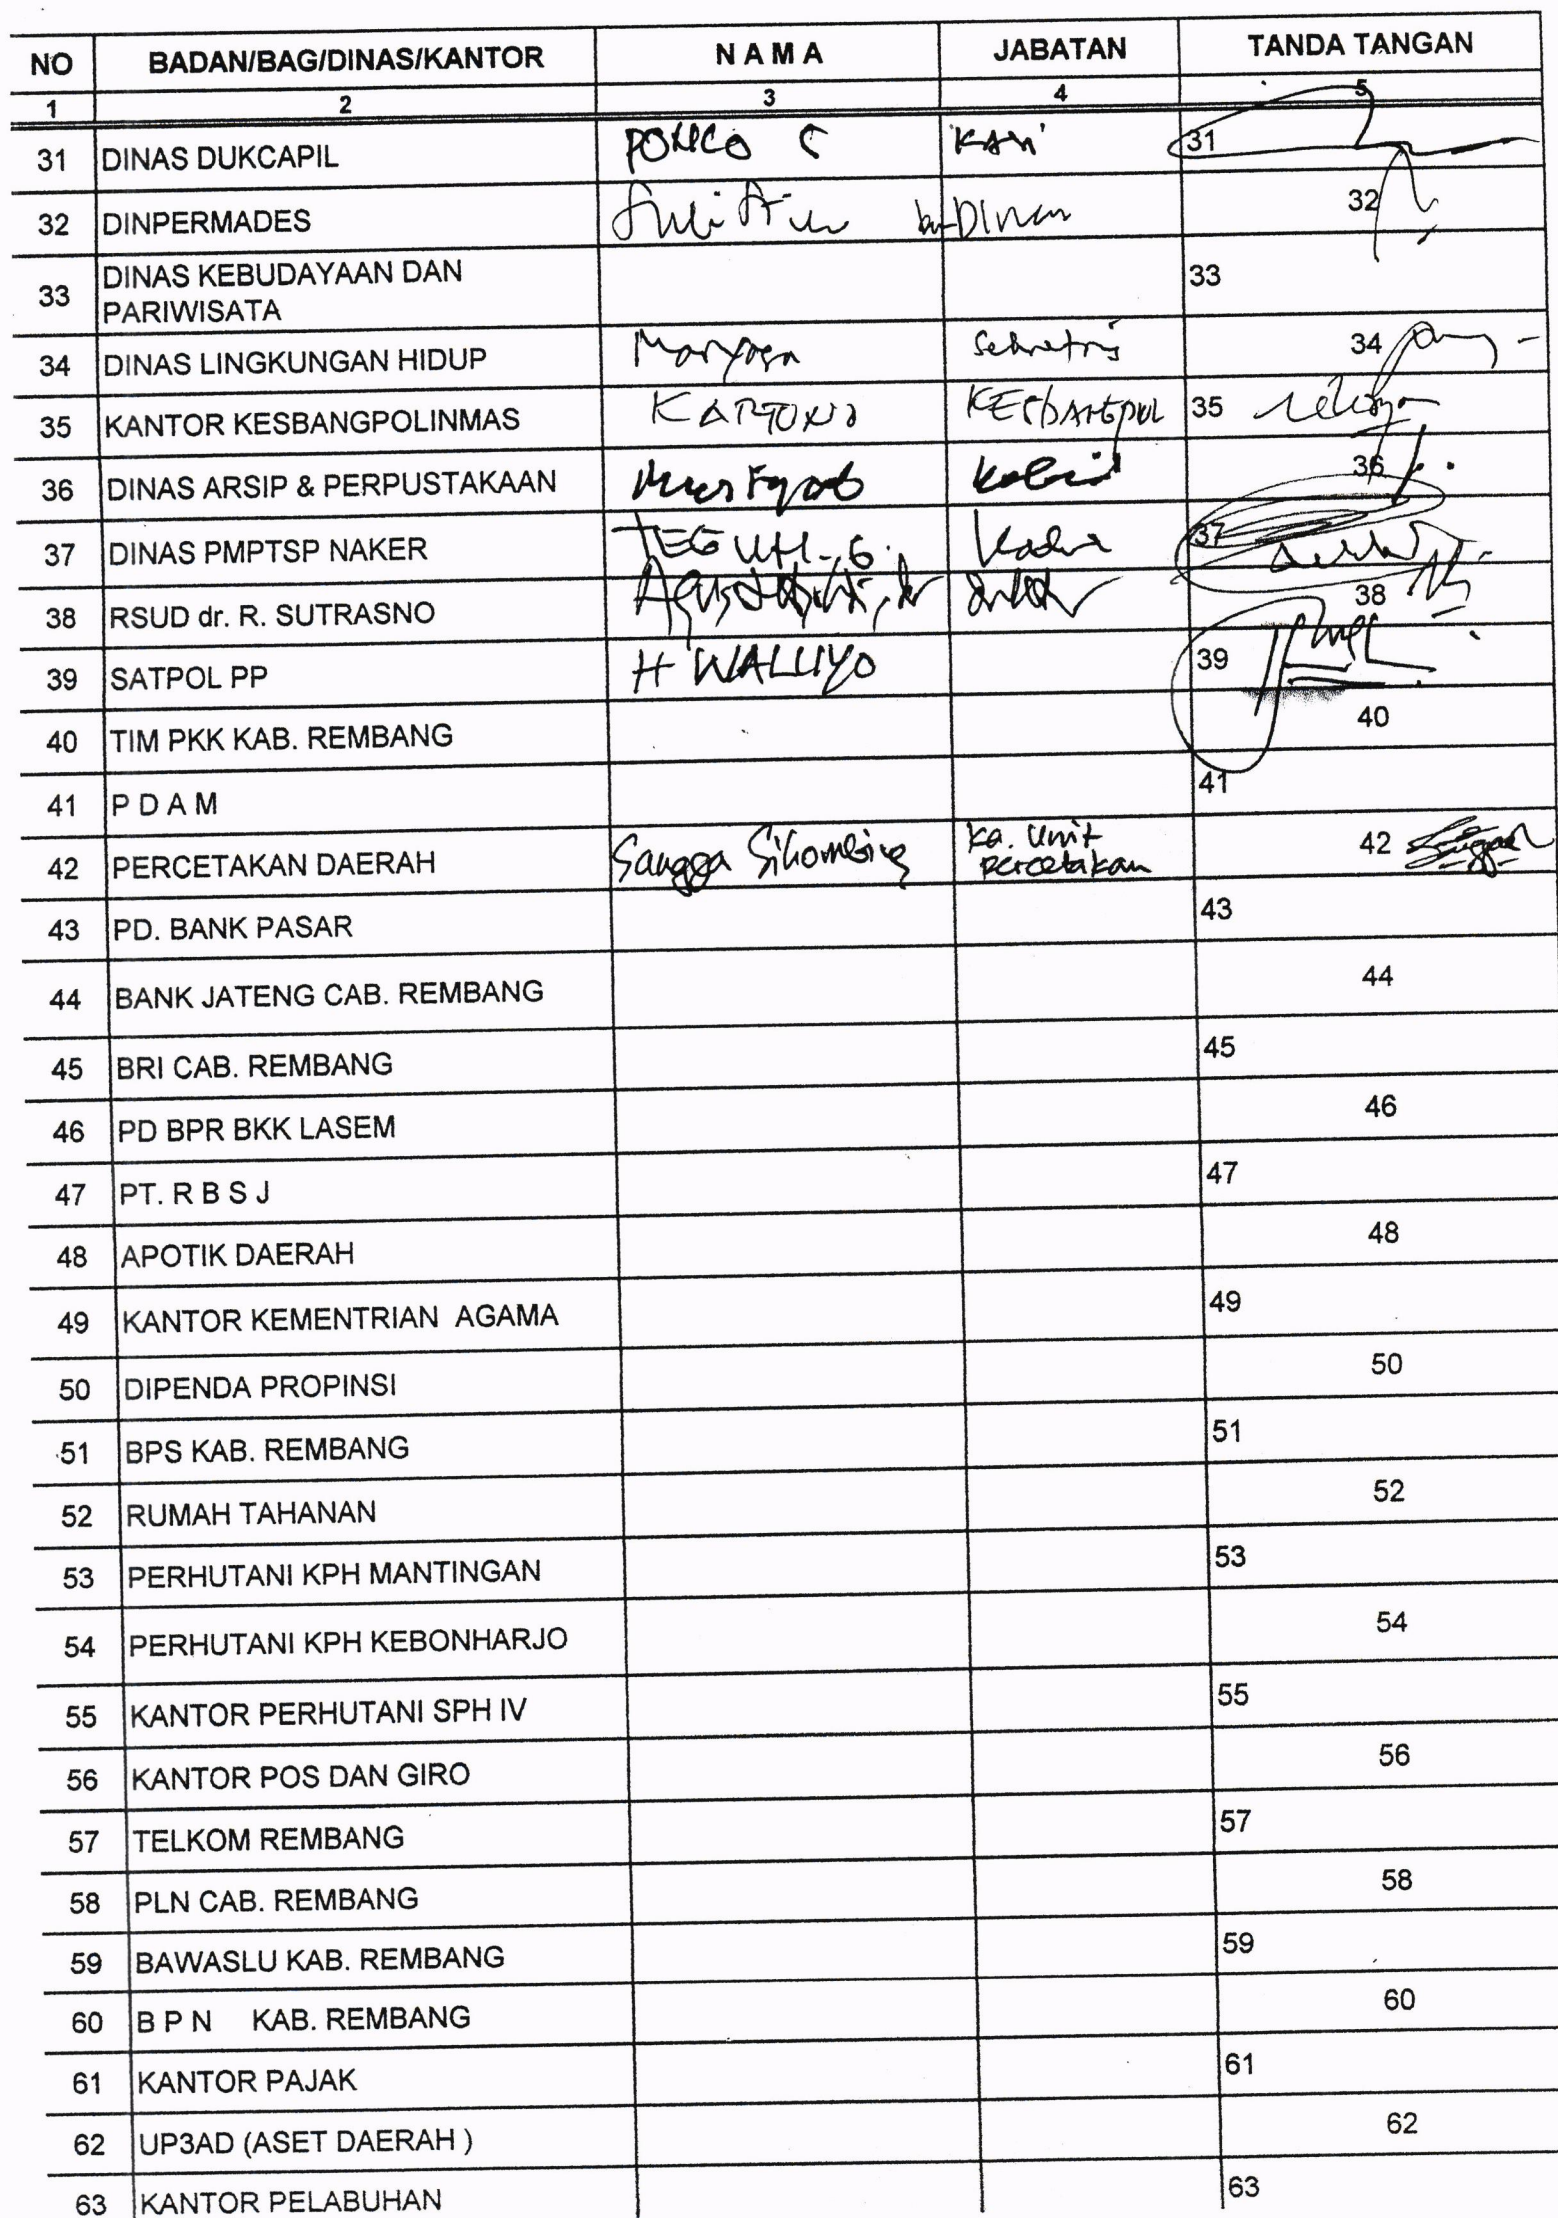 NO BADAN/BAG/DINAS/KANTOR N A M A JABATAN TANDA TANGAN
1 2 3 4 5
31 DINAS DUKCAPIL 31
32 DINPERMADES 32
33 DINAS KEBUDAYAAN DAN
PARIWISATA 33
34 DINAS LINGKUNGAN HIDUP 34
35 KANTOR KESBANGPOLINMAS KARTONO 35
36 DINAS ARSIP & PERPUSTAKAAN Kabid 36
37 DINAS PMPTSP NAKER TEGUH. G. 37
38 RSUD dr. R. SUTRASNO 38
39 SATPOL PP H WALUYO 39
40 TIM PKK KAB. REMBANG 40
41 P D A M 41
42 PERCETAKAN DAERAH Sangga Sihombing Ka. Unit
percetakan 42
43 PD. BANK PASAR 43
44 BANK JATENG CAB. REMBANG 44
45 BRI CAB. REMBANG 45
46 PD BPR BKK LASEM 46
47 PT. R B S J 47
48 APOTIK DAERAH 48
49 KANTOR KEMENTRIAN AGAMA 49
50 DIPENDA PROPINSI 50
51 BPS KAB. REMBANG 51
52 RUMAH TAHANAN 52
53 PERHUTANI KPH MANTINGAN 53
54 PERHUTANI KPH KEBONHARJO 54
55 KANTOR PERHUTANI SPH IV 55
56 KANTOR POS DAN GIRO 56
57 TELKOM REMBANG 57
58 PLN CAB. REMBANG 58
59 BAWASLU KAB. REMBANG 59
60 B P N KAB. REMBANG 60
61 KANTOR PAJAK 61
62 UP3AD (ASET DAERAH ) 62
63 KANTOR PELABUHAN 63